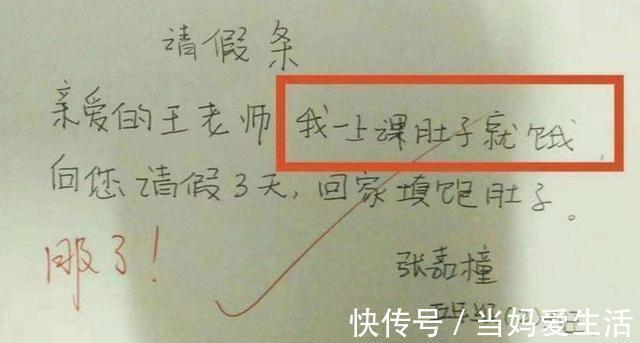 请假条
亲爱的王老师 我一上课肚子就饿,
向您请假3天,回家填饱肚子。
服了!
张嘉橦
快传号/当妈爱生活